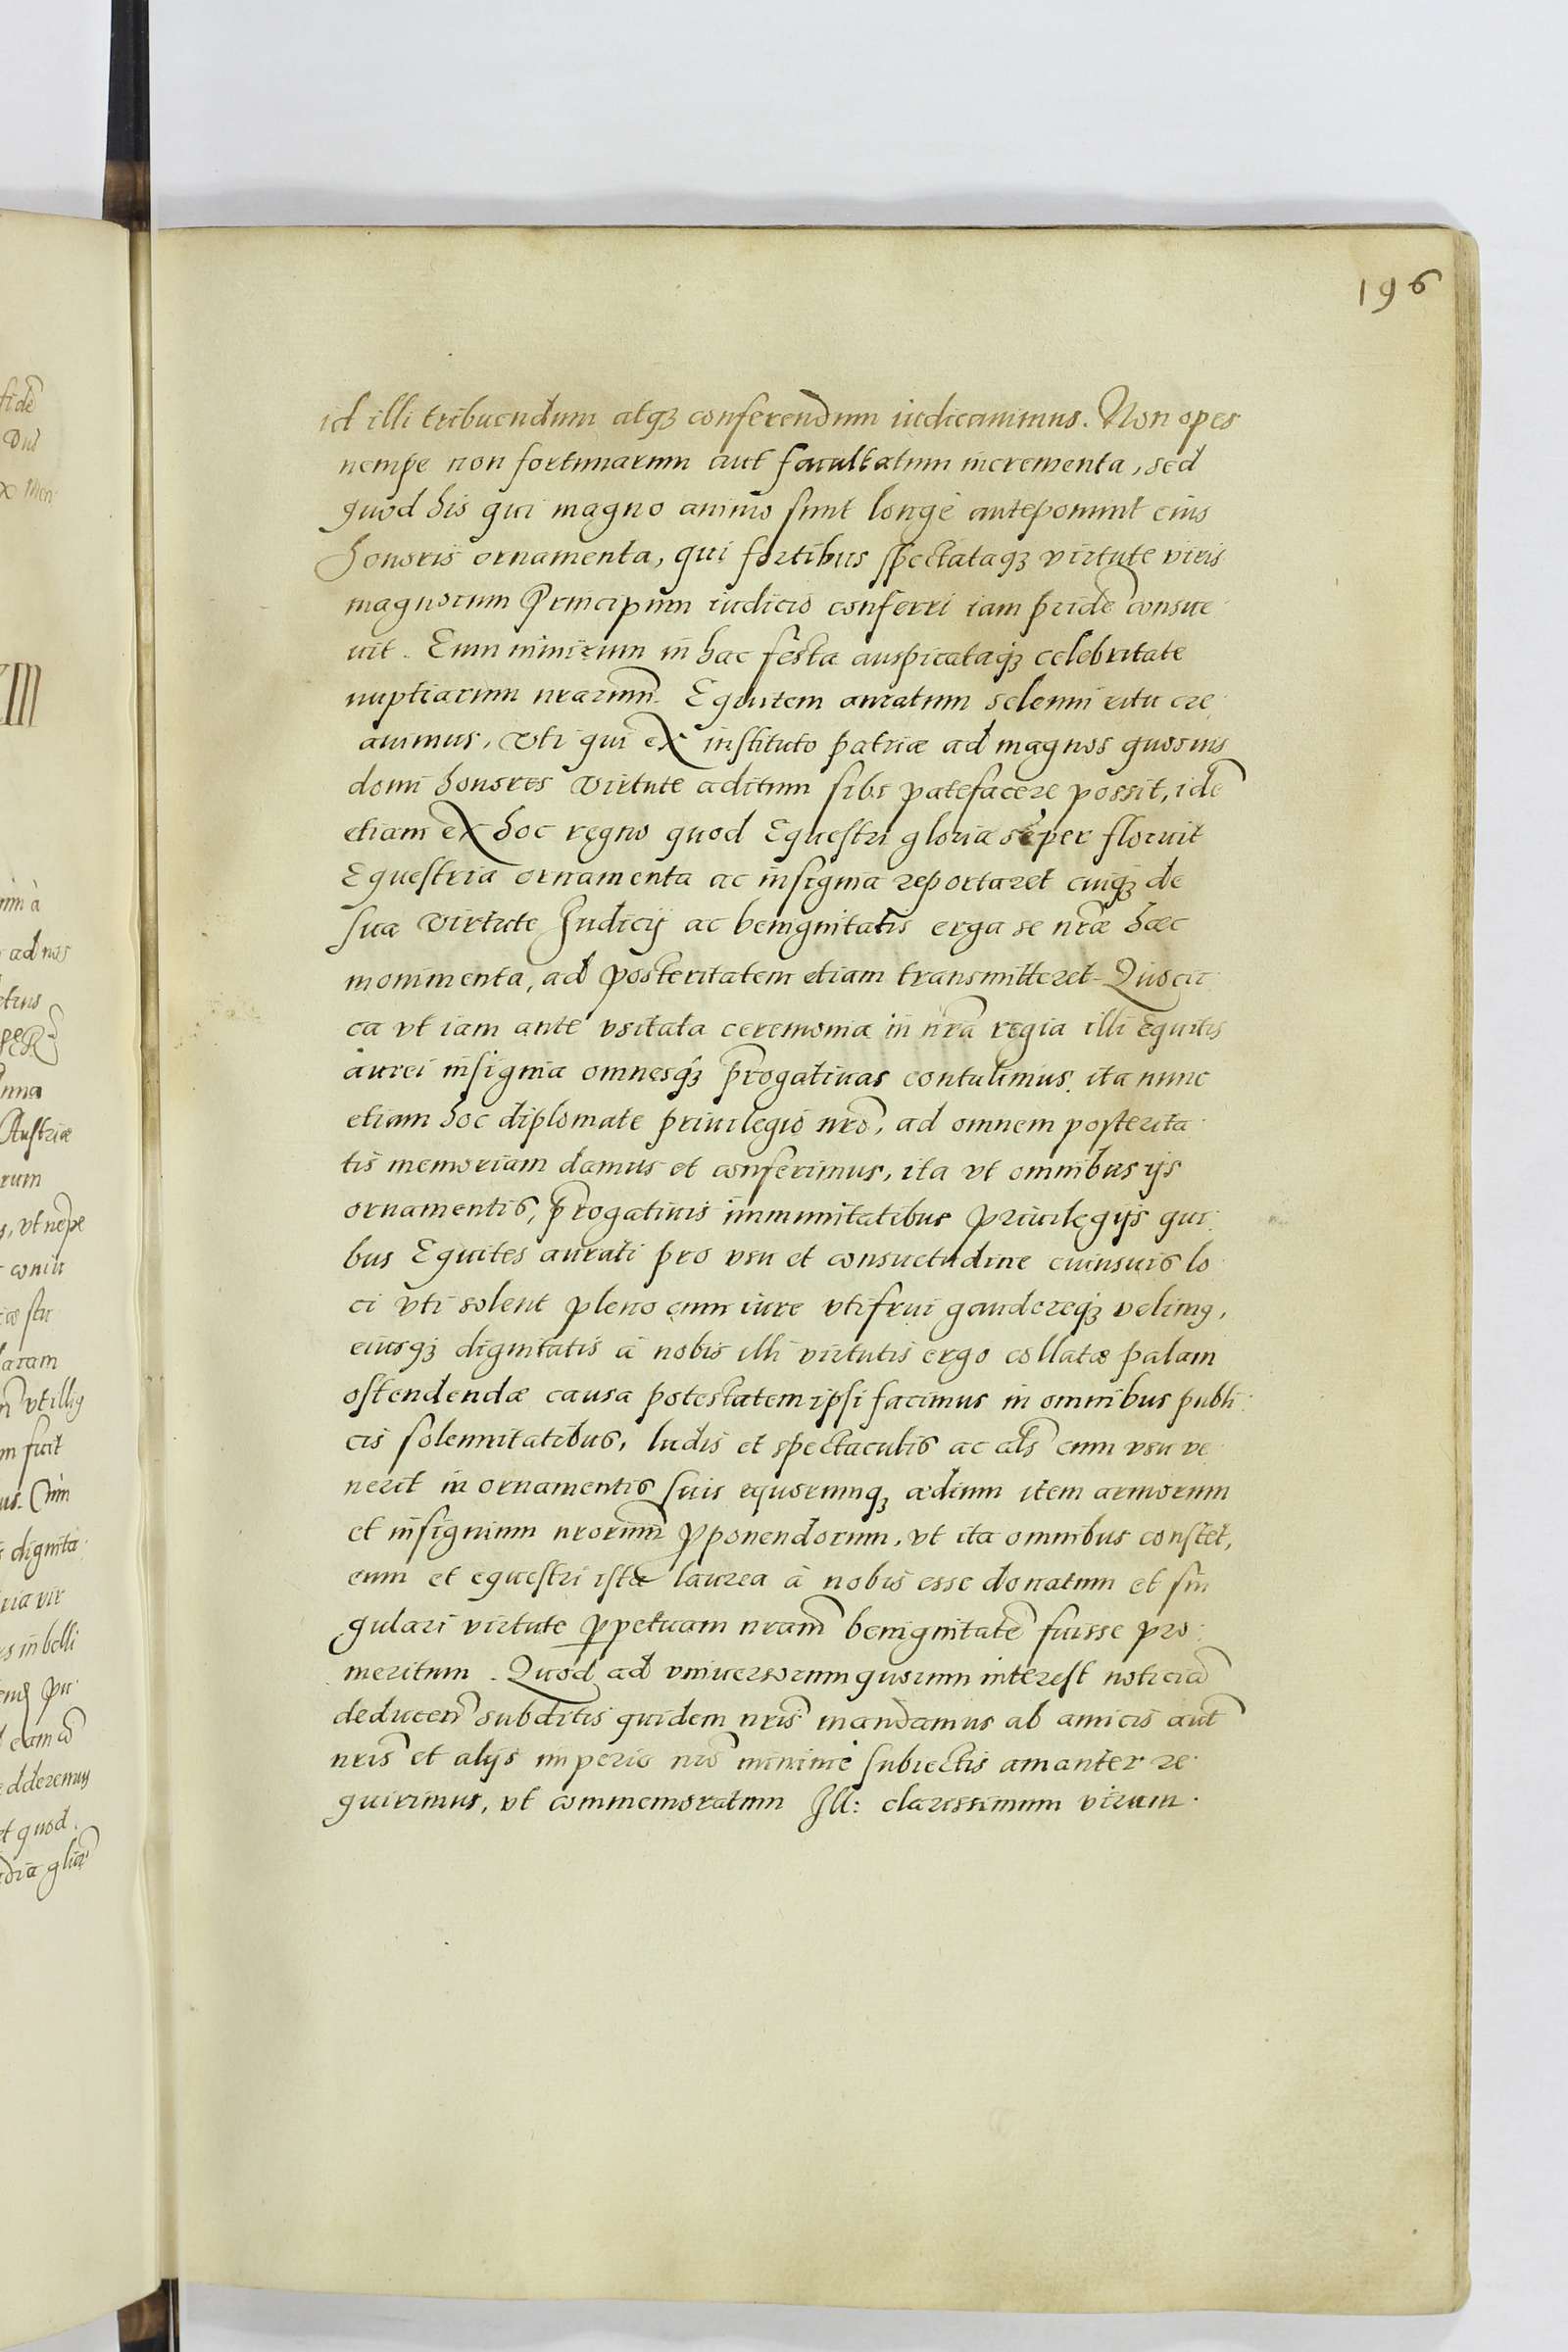 196
id illi tribuendum atqꝫ conferendum iudicauimus. Non opes
nempe non fortunarum aut facultatum incrementa, sed
quod his qui magno animo sunt longè anteponunt eius
honoris ornamenta, qui fortibus spectataqꝫ virtute viris
magnorum Principum iudicio conferri iam pridẽ consue
uit. Eum nimirum in hac festa auspicataqꝫ celebritate
nuptiarum nrarum̃. Equitem auratum solemni ritu cre
auimus, vti qui ex instituto patriæ ad magnos quosuis
domi honores virtute aditum sibi patefacere possit, idẽ
etiam ex hoc regno quod Equestri gloria sẽper floruit
Equestria ornamenta ac insignia reportaret cuiqꝫ de
sua virtute Iudicij ac benignitatis erga se nr̃æ hæc
monimenta, ad posteritatem etiam transmitteret. Quocir
ca vt iam ante vsitata ceremonia in nr̃a regia illi equitis
aurei insignia omnesqꝫ p̃rogatiuas contulimus, ita nunc
etiam hoc diplomate priuilegio nrõ, ad omnem posterita
tis memoriam damus et conferimus, ita vt omnibus ijs
ornamentis, p̃rogatiuis immunitatibus priuilegijs qui
bus Equites aurati pro vsu et consuetudine cuiusuis lo
ci vti solent pleno eum iure vti frui gaudereqꝫ velimꝯ,
eiusqꝫ dignitatis à nobis illi virtutis ergo collatæ palam
ostendendæ causa potestatem ipsi facimus in omnibus publi
cis solennitatibus, ludis et spectaculis ac als̃ cum vsu ve
nerit in ornamentis suis equorumqꝫ ædium item armorum
et insignium nrorum̃ ꝓponendorum, vt ita omnibus constet,
eum et equestri ista laurea à nobis esse donatum et sin
gulari virtute ꝑpetuam nram̃ benignitatẽ fuisse pro
meritum. Quod ad vniuersorum quorum interest noticiã
deducen̄ subditis quidem nris̃ mandamus ab amicis aut̃
nris̃ et alijs imperio nrõ minimè subiectis amanter re
quirimus, vt commemoratum Ill: clarissimum virum.